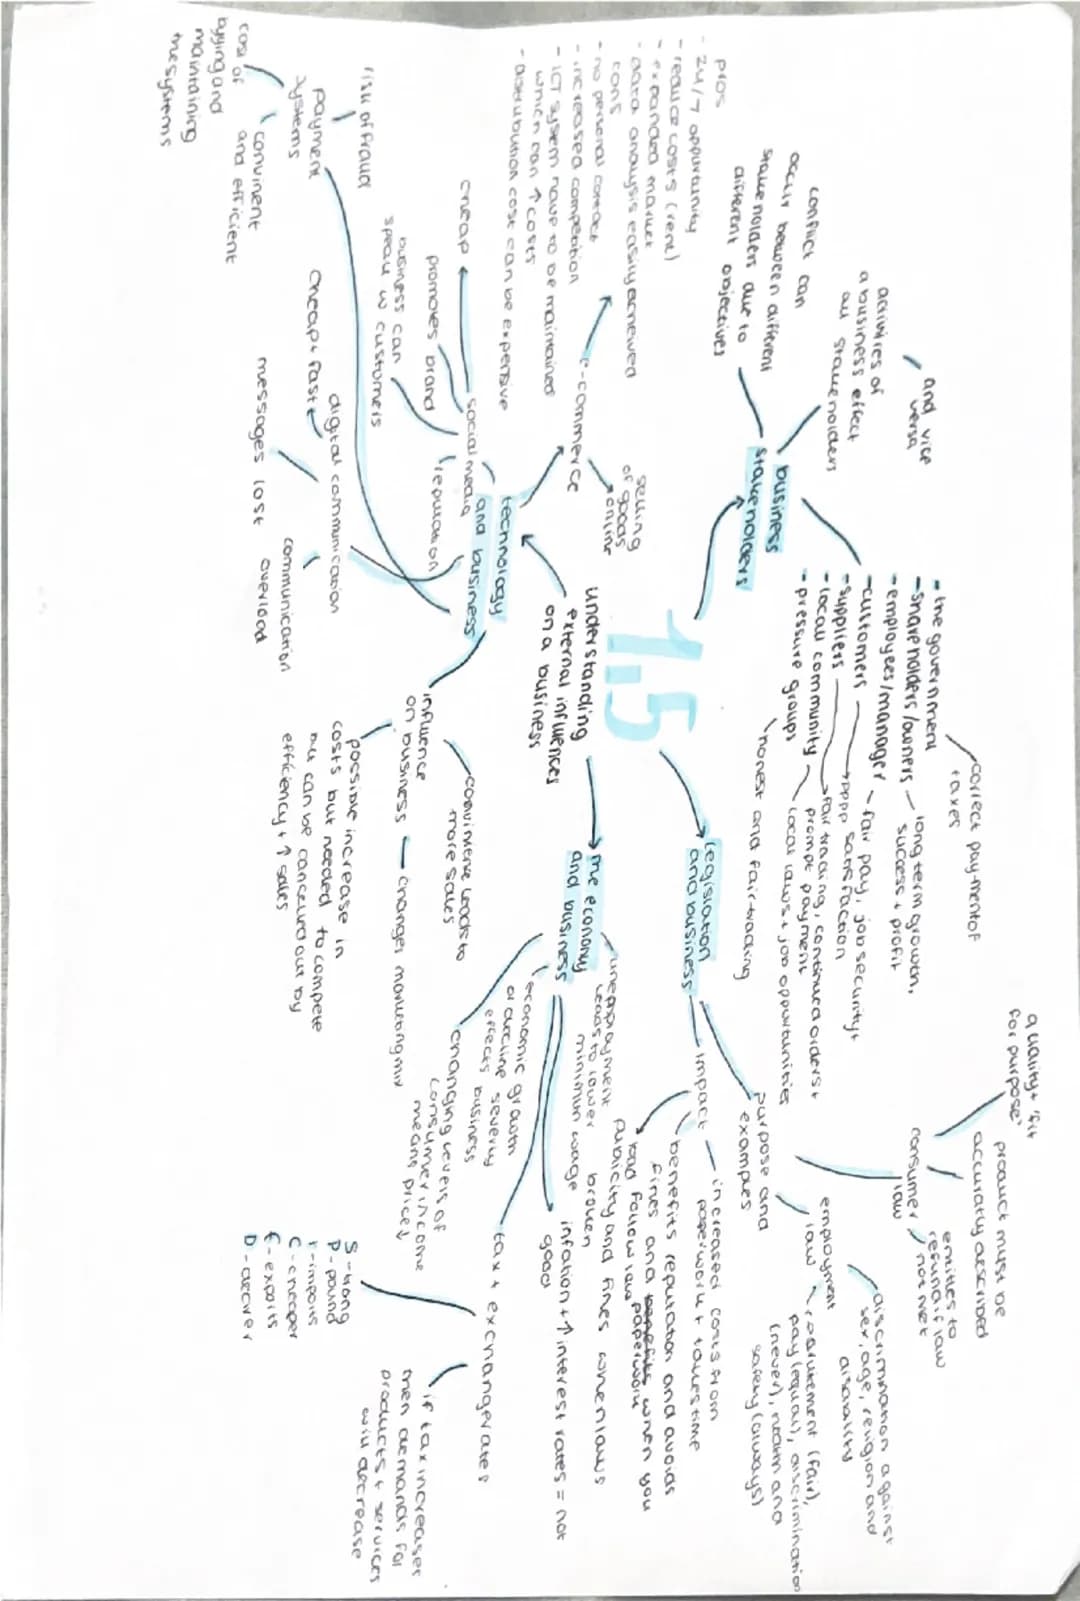 1.5
understanding
external influences
on a business
business
stakeholders
conflict can
occur between different
stakeholders due to
different objectives
activities of
a business effect
all stakeholders
and vice
versa
- the government
- shareholders/owners
- employees/manager
- customers
- suppliers
- local community
- pressure groups
correct payment of
taxes
long term growth,
success + profit
fair pay, job security +
satisfaction
fair trading, continued orders +
prompt payment
local laws + job opportunities
honest and fair trading
legislation
and business
purpose and
examples
consumer
law
quality + 'fit
for purpose'
product must be
accuratly described
entitles to
refund if law
not met
employment
law
discrimination against
sex, age, religion and
disability
recruitement (fair),
pay (equal), discrimination
(never), health and
safety (always)
impact
increased costs from
paperwork + takes time
benefits reputation and avoids
fines and benefits when you
follow law paperwork
bad
publicity and fines when laws
broken
the economy
and business
unemployment
leads to lower
minimun wage
inflation + ↑ interest rates = not
good
economic growth
or decline severly
effects business
changing levels of
consumer income
means pricey
tax + exchange rates
S - trong
P - pound
I - imports
C - cheaper
E - exports
D - dearer
if tax increases
then demands for
products + services
will decrease
technology
and business
e-commerce
selling
of goods
online
pros
- 24/7 oppurtunity
- reduce costs (rent)
- expanded market
- data analysis easily acheived
cons
- no personal contact
- increased competition
- ICT system have to be maintained
which can ↑ costs
- distrubution cost can be expensive
social media
cheap
promotes brand
business can
speak w customers
reputation
digital communication
cheap + fast
messages lost
communication
overload
payment
systems
risk of fraud
convinent
and efficient
cost of
bying and
maintaining
the systems
influence
on business
convinience leads to
more sales
changes marketing mix
possible increase in
costs but needed to compete
all can be canceled out by
efficiency + ↑ sales